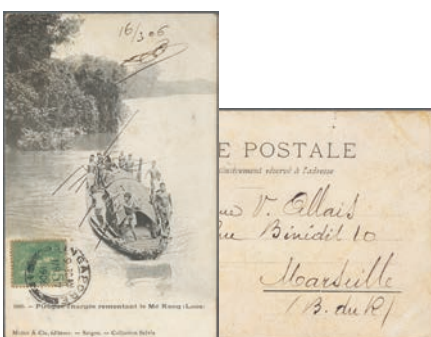 16/3 06
SINGAPORE
Pirogue chargée remontant le Mé Kong (Laos)
Moine & Cie, éditeur. — Saigon. — Collection Salvla
E POSTALE
exclusivement réservé à l'adresse
V. Allais
Bénédit 10
Marseille
(B. du R)